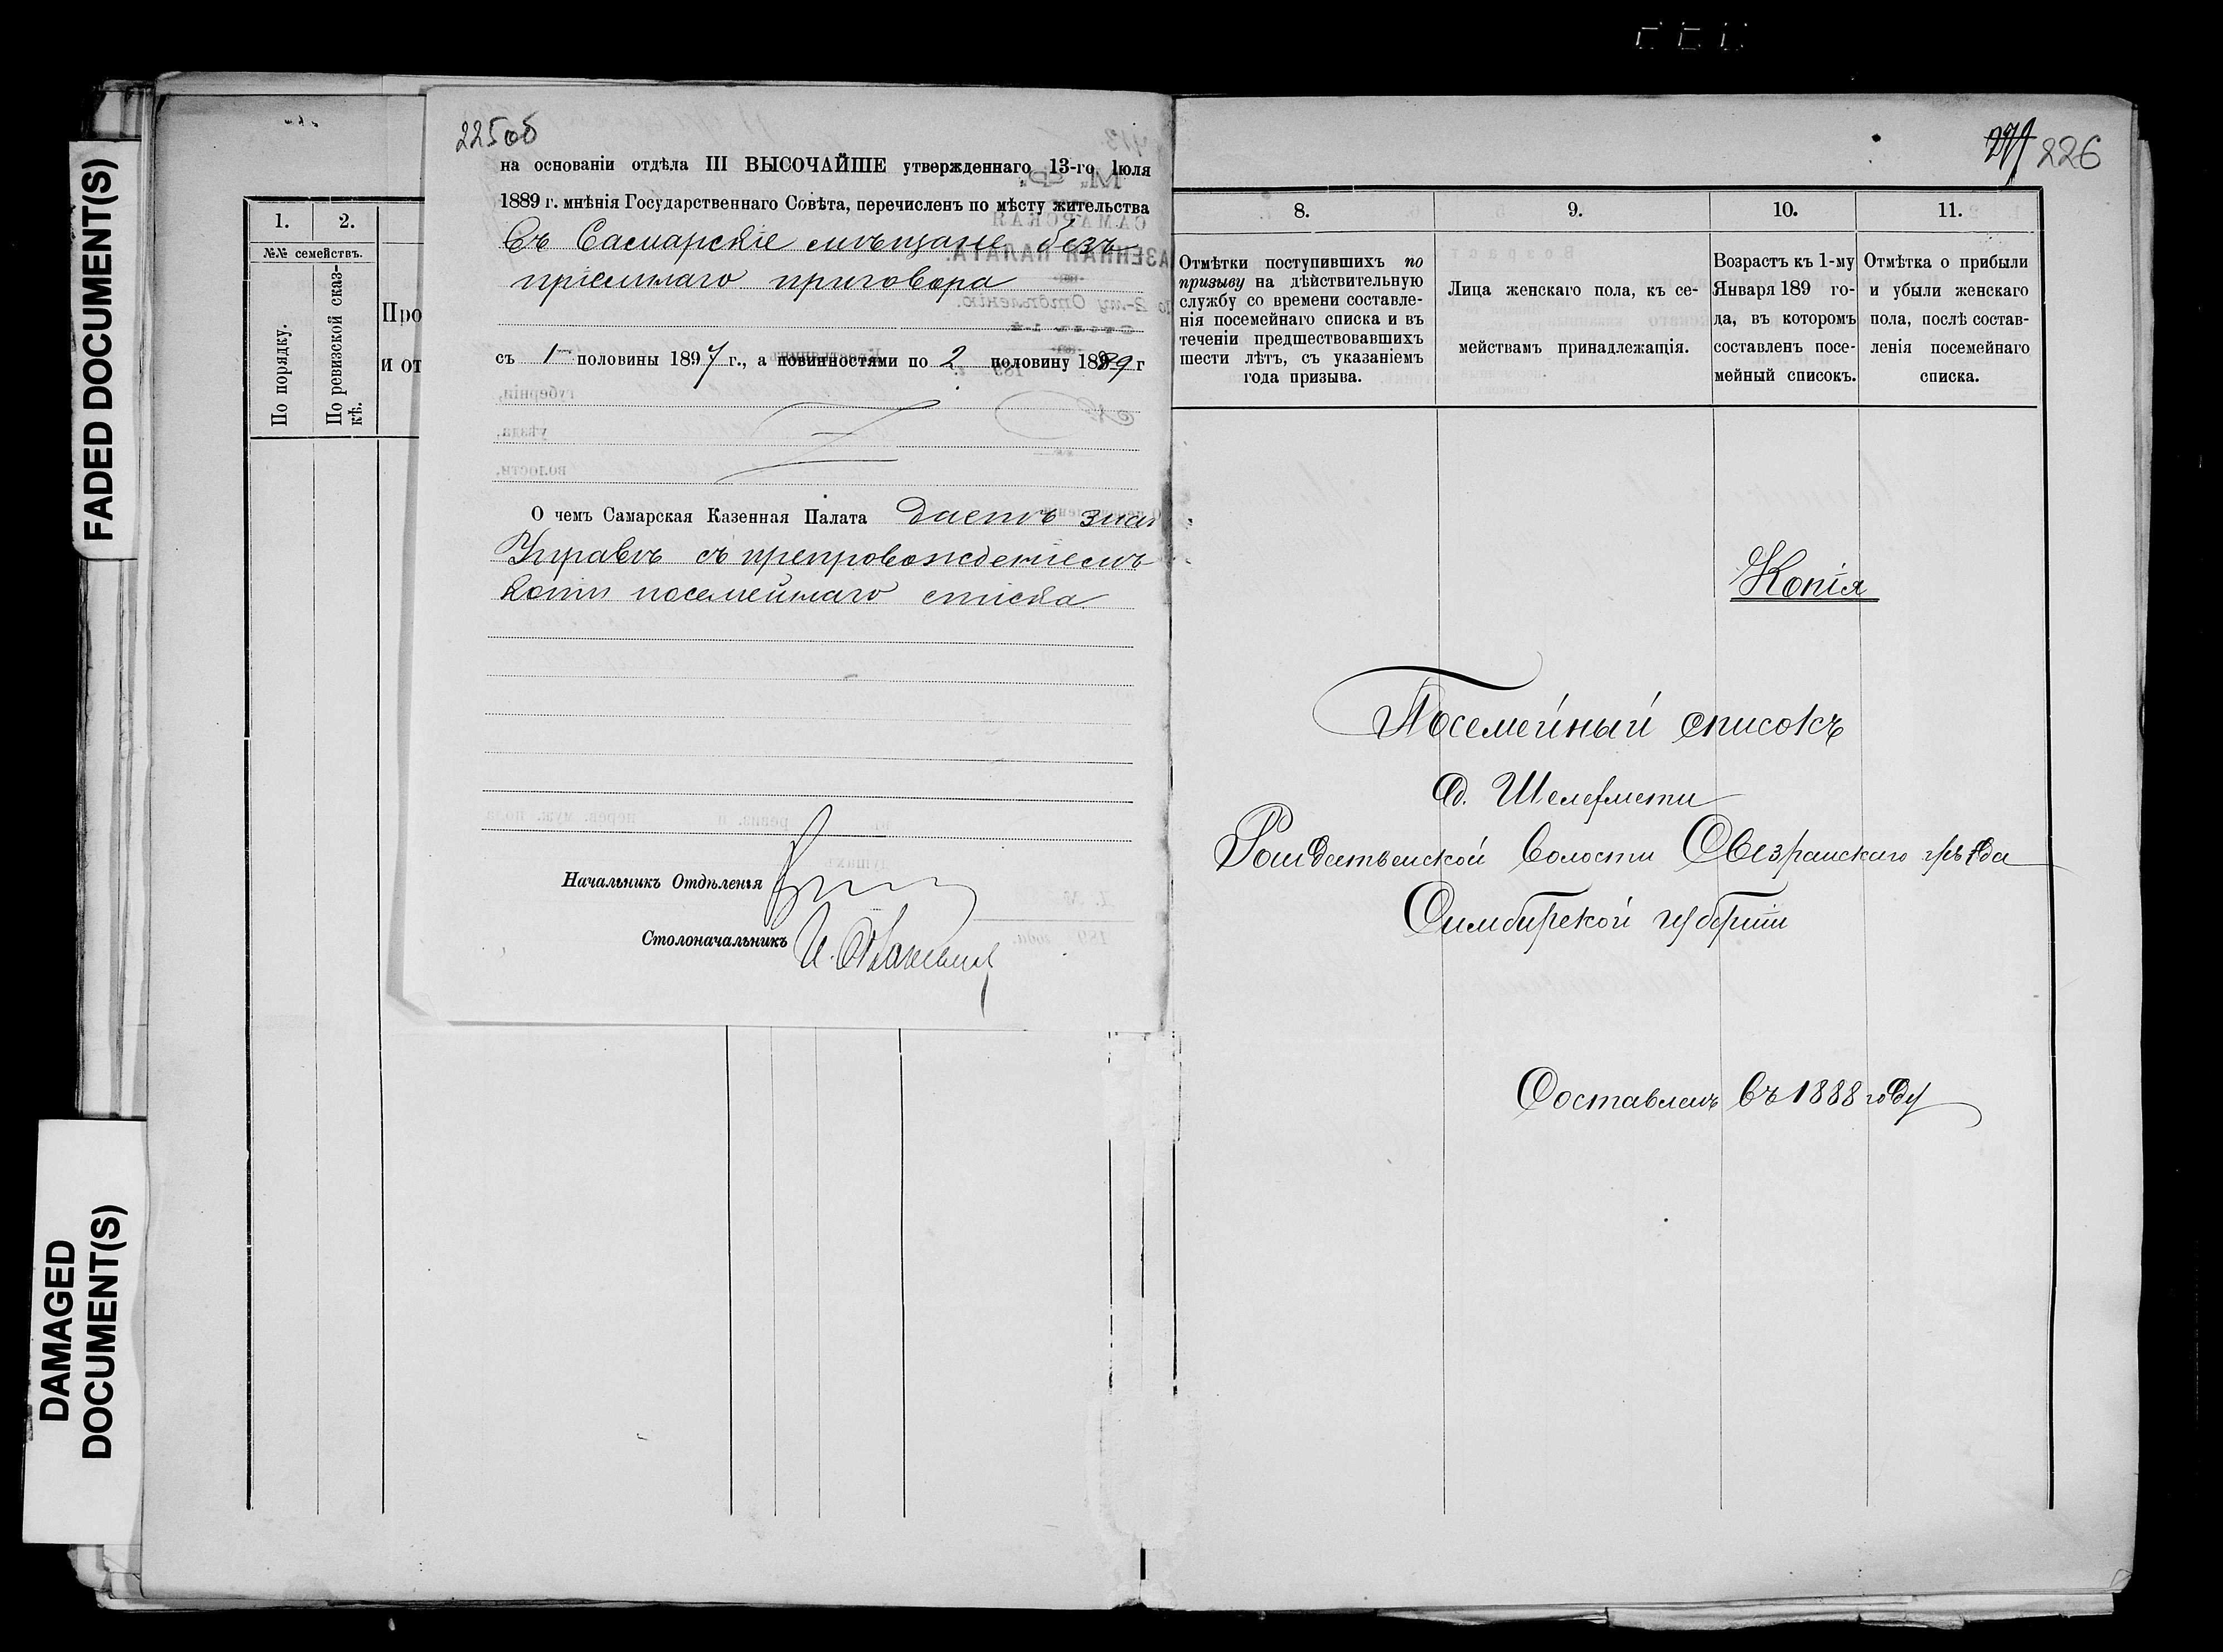 FADED DOCUMENT(S)
DAMAGED
DOCUMENT(S)
225об
на основаніи отдѣла III ВЫСОЧАЙШЕ утвержденнаго 13-го Іюля
1889 г. мнѣнія Государственнаго Совѣта, перечисленъ по мѣсту жительства
Въ Самарскіе мѣщане безъ
пріемнаго приговора
съ 1 половины 1897 г., а повинностями по 2 половину 1899 г
О чемъ Самарская Казенная Палата даетъ знат
Управѣ съ препровожденіемъ
копіи посемейнаго списка
Начальникъ Отдѣленія
Столоначальникъ И.
1. 2.
№№ семействъ.
По порядку.
По ревизской сказ-
кѣ.
Про
и от
226
8. 9. 10. 11.
Отмѣтки поступившихъ по
призыву на дѣйствительную
службу со времени составле-
нія посемейнаго списка и въ
теченіи предшествовавшихъ
шести лѣтъ, съ указаніемъ
года призыва.
Лица женскаго пола, къ се-
мействамъ принадлежащія.
Возрастъ къ 1-му
Января 189 го-
да, въ которомъ
составленъ посе-
мейный списокъ.
Отмѣтка о прибыли
и убыли женскаго
пола, послѣ состав-
ленія посемейнаго
списка.
Копія
Посемейный списокъ
д. Шелехмети
Рождественской волости Сызранскаго уѣзда
Симбирской губерніи
Составленъ въ 1888 году